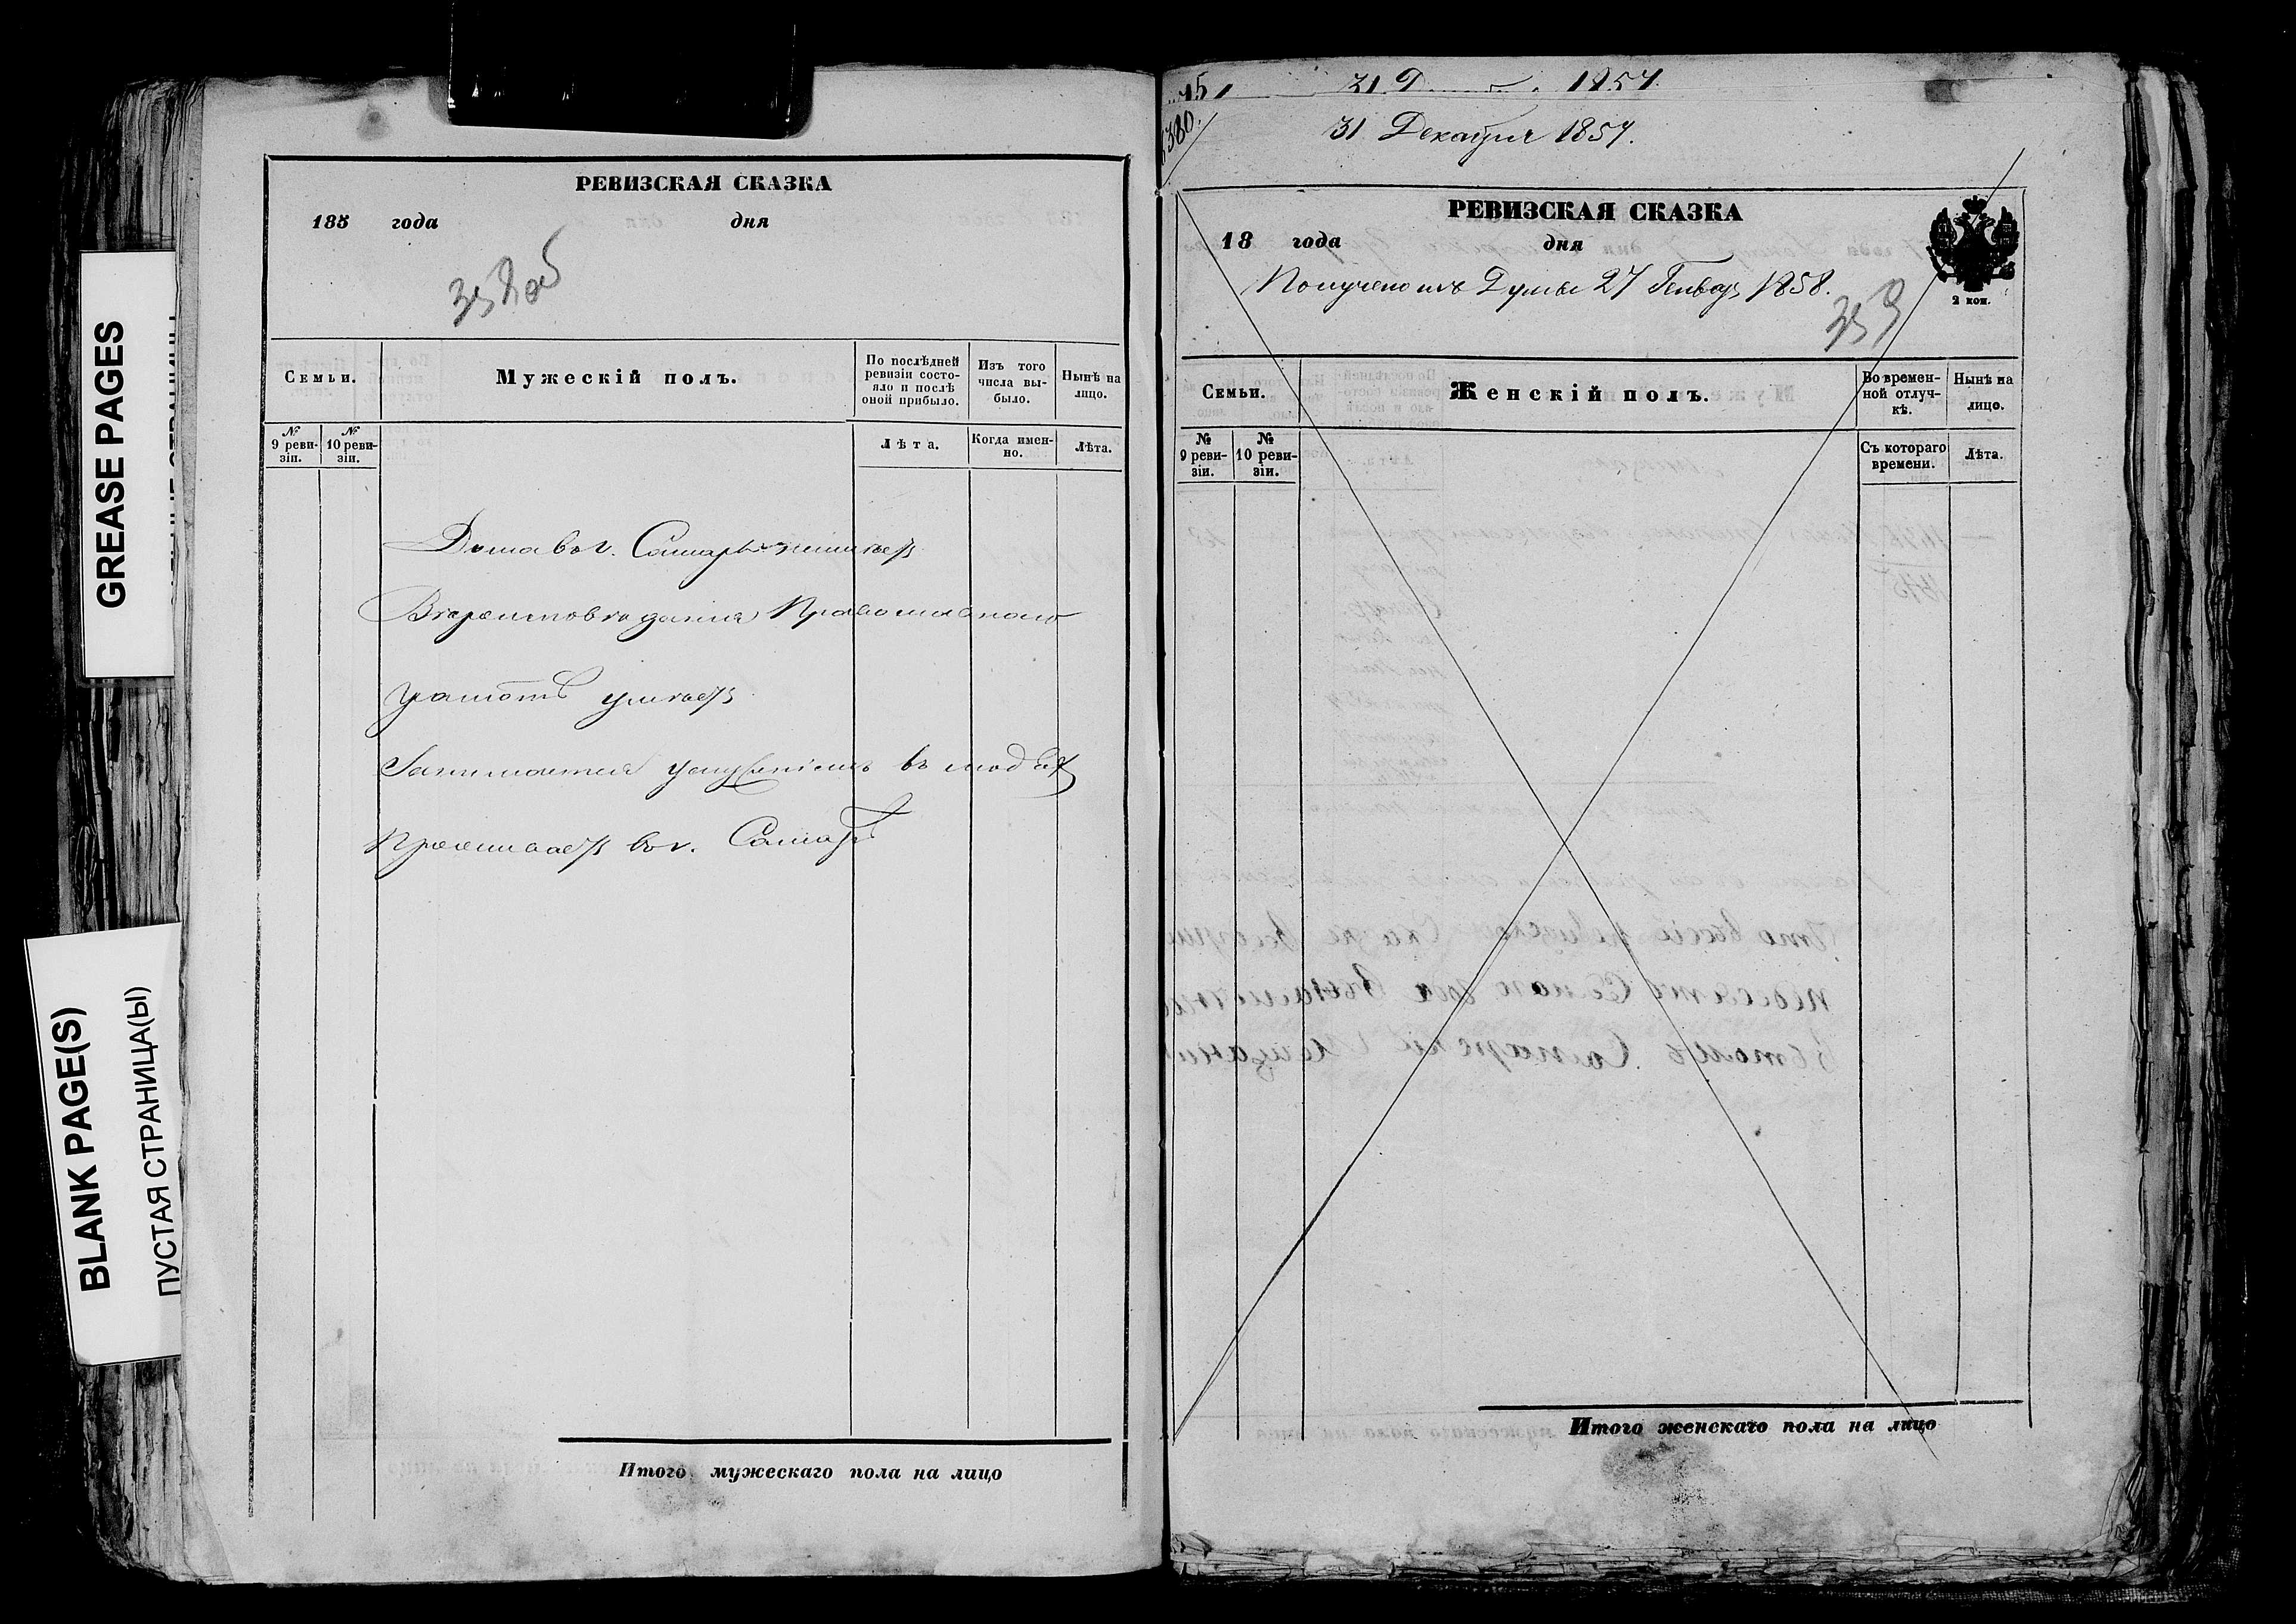 GREASE PAGES
BLANK PAGE(S)
ПУСТАЯ СТРАНИЦА(Ы)
РЕВИЗСКАЯ СКАЗКА
185 года дня
358 об
Семьи.
Мужескій полъ.
По послѣдней ревизіи состо-
яло и послѣ
оной прибыло.
Изъ того
числа вы-
было.
Нынѣ на
лицо.
№
9 реви-
зіи.
№
10 реви-
зіи.
Лѣта.
Когда имен-
но.
Лѣта.
Дома въ г. Самарѣ не имѣетъ
Вѣроисповѣданія Православнаго
Грамотѣ умѣетъ
Занимается услуженіемъ въ людяхъ
Проживаетъ въ г. Самарѣ
Итого мужескаго пола на лицо
31 Д 1857.
31 Декабря 1857.
РЕВИЗСКАЯ СКАЗКА
18 года дня
Получено изъ Думы 27 Генвар 1858.
359
2 коп.
Семьи.
Женскій полъ.
Во времен-
ной отлуч-
кѣ.
Нынѣ на
лицо.
№
9 реви-
зіи.
№
10 реви-
зіи.
Съ котораго
времени.
Лѣта.
Итого женскаго пола на лицо